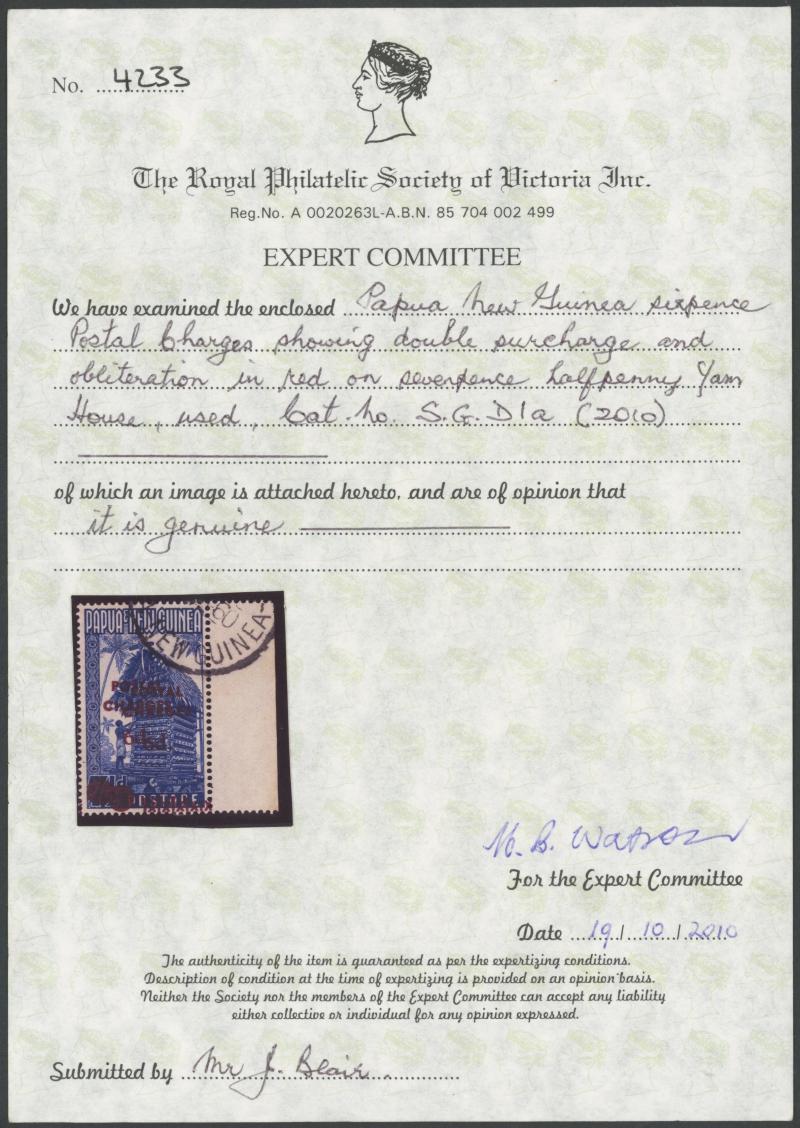 No. 4233
The Royal Philatelic Society of Victoria Inc.
Reg.No. A 0020263L-A.B.N. 85 704 002 499
EXPERT COMMITTEE
We have examined the enclosed Papua New Guinea sixpence
Postal Charges showing double surcharge and
obliteration in red on sevenpence halfpenny Yam
House, used, Cat. No. S.G. D1a (2010)
of which an image is attached hereto, and are of opinion that
it is genuine
PAPUA & NEW GUINEA
NEW GUINEA
POSTAL
CHARGES
6d.
7½d POSTAGE
M. B. Watson
For the Expert Committee
Date 19/10/2010
The authenticity of the item is guaranteed as per the expertizing conditions.
Description of condition at the time of expertizing is provided on an opinion basis.
Neither the Society nor the members of the Expert Committee can accept any liability
either collective or individual for any opinion expressed.
Submitted by Mr J. Blair